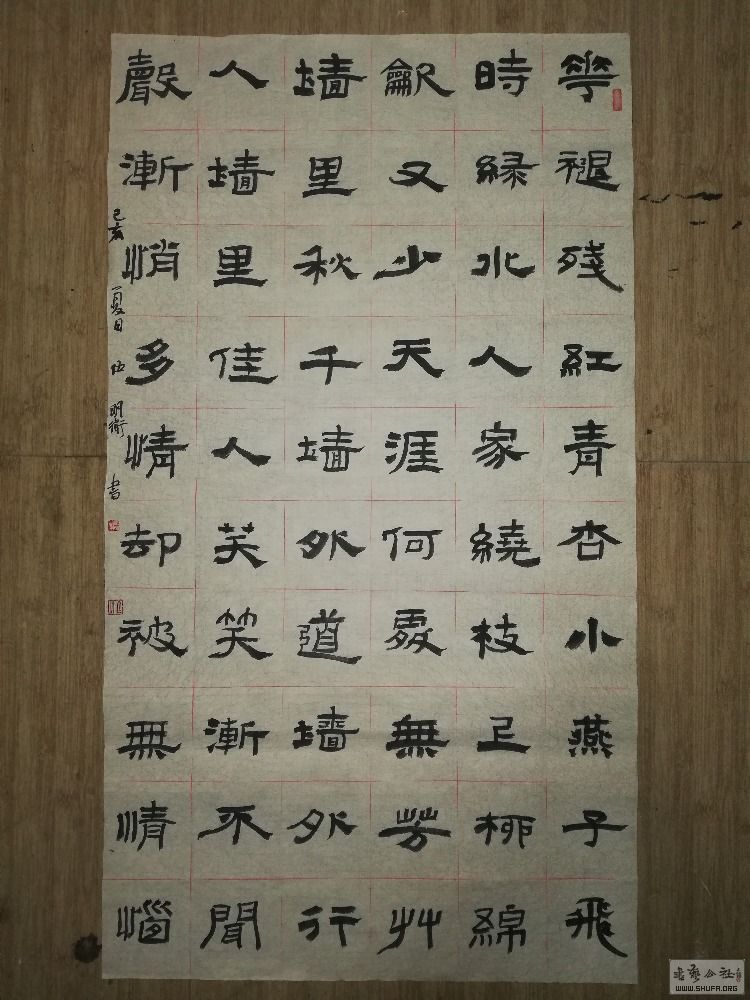 華褪殘紅青杏小燕子飛
時緑水人家繞枝上柳綿
龡又少天涯何處無芳艸
墻里秋千墻外道墻外行
人墻里佳人芺笑漸不聞
聲漸悄多情却被無情惱
己亥夏日伍明衛書
书藝公社
WWW.SHUFA.ORG